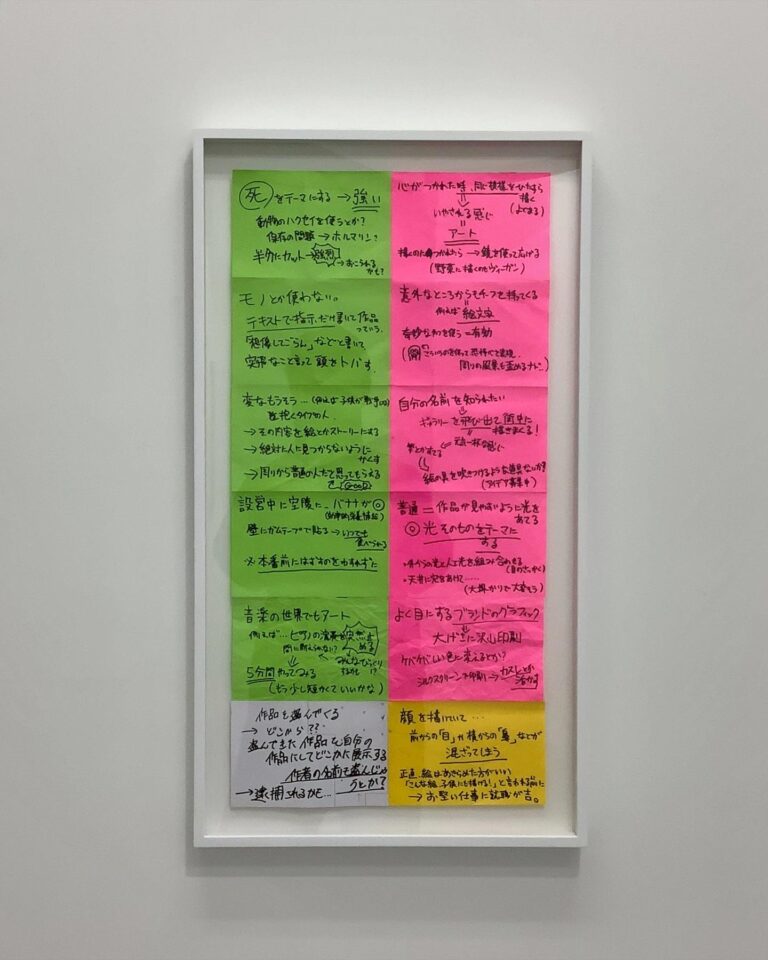 死をテーマにする → 強い
動物のハクセイを使うとか?
保存の問題 → ホルマリン?
半分にカット → 強烈
→ おこられるかも?
モノとか使わない。
テキストで指示だけ書いて作品
っていう。
「想像してごらん」などと書いて
突飛なこと言って頭をトバす。
変なもうそう…(例えば子供が戦争
を抱くタイプの人
→ その内容を絵とかストーリーにする
→ 絶対に人に見つからないように
かくす
→ 周りから普通の人だと思ってもらえる
GOOD
設営中に空腹に、バナナが◎
壁にガムテープで貼る → いつでも
食べられる
※本番前にははずすのをわすれずに
音楽の世界でもアート
例えば…ピアノの演奏を突然止
める
間に耐えられない?
みんなびっくり
するかも!?
5分間やってみる
(もう少し短かくていいかな)
作品を盗んでくる
→ どこから??
盗んできた作品を自分の
作品にしてどこかに展示する
作者の名前も盗んじゃ
うとか?
→ 逮捕されるかも…
心がつかれた時、同じ模様をひたすら
描く
いやされる感じ
(よくある)
アート
描くのにつかれたら → 鏡を使って広げる
(野菜に描くのもヴィーガン)
意外なところからモチーフを持ってくる
例えば 絵文字
奇妙なかおを使う=有効
周りの風景も歪めるナド。)
自分の名前を知られたい
ギャラリーを飛び出て街中に
描きまくる!
絵の具を吹きつけるような道具ないかな?
(アイデア募集中)
普通=作品が見やすいように光を
あてる
◎光そのものをテーマに
する
・外からの光と人工光を組み合わせる
・天井に穴をあけて……
(大掛かりで大変そう)
よく目にするブランドのグラフィック
大げさに沢山印刷
ケバケバしい色に変えるとか?
シルクスクリーンで印刷 → カスレとか
活かす
顔を描いていて…
前からの「目」が横からの「鼻」などが
混ざってしまう
正直、絵はあきらめた方がいい
「こんな絵子供にも描ける!」と言われる前に
→ お堅い仕事に就職が吉。